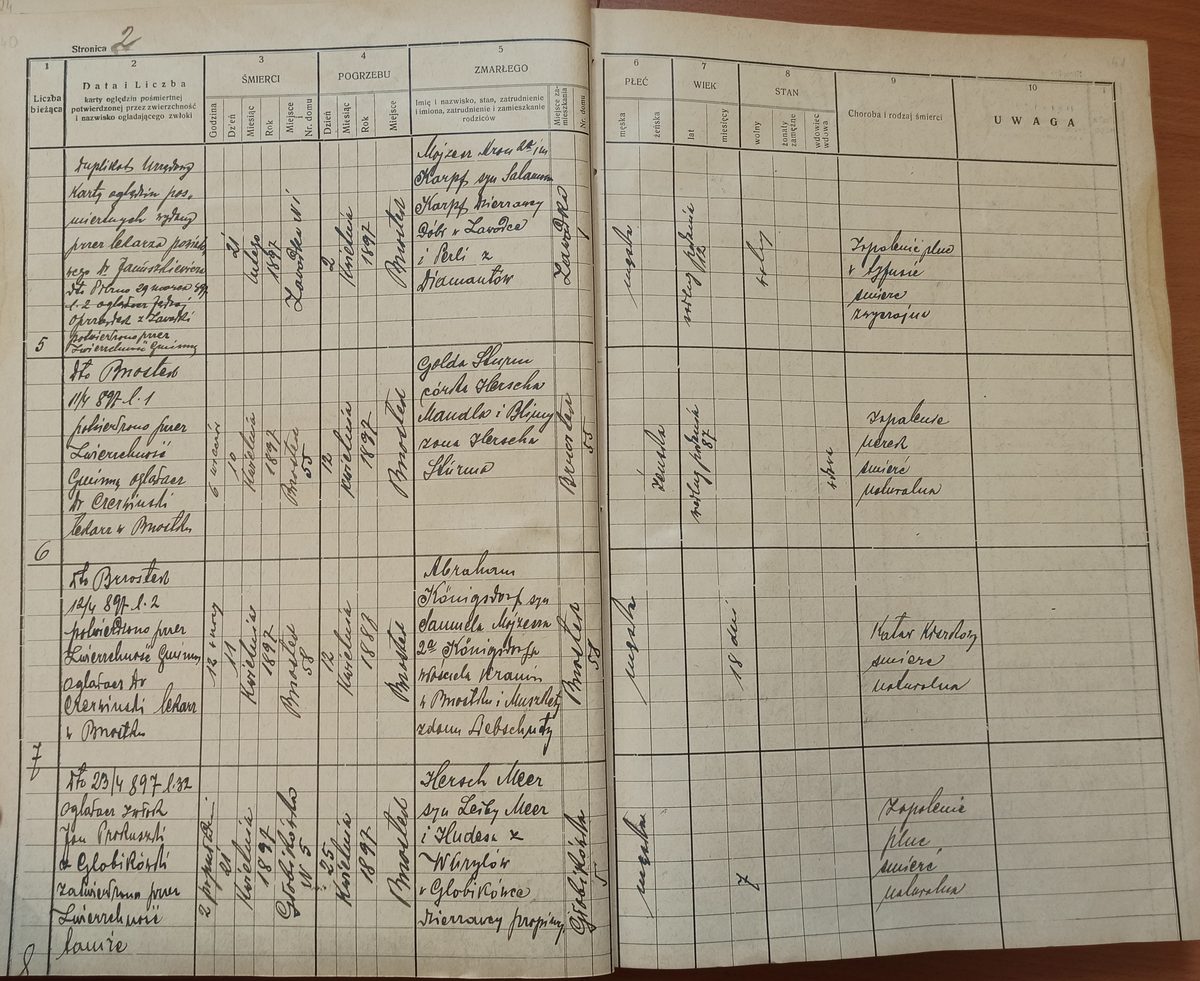 Stronica 2
1
2
3
4
5
6
7
8
9
10
Liczba bieżąca
Data i Liczba
karty oględzin pośmiertnej
potwierdzonej przez zwierzchność
i nazwisko oglądającego zwłoki
ŚMIERCI
Godzina
Dzień
Miesiąc
Rok
Miejsce i Nr. domu
POGRZEBU
Dzień
Miesiąc
Rok
Miejsce
ZMARŁEGO
Imię i nazwisko, stan, zatrudnienie
i imiona, zatrudnienie i zamieszkanie
rodziców
Miejsce zamieszkania
Nr. domu
PŁEĆ
męska
żeńska
WIEK
lat
miesięcy
STAN
wolny
żonaty
zamężna
wdowiec
wdowa
Choroba i rodzaj śmierci
UWAGA
5
Duplikat Urzędowy
Karty oględzin poś-
miertnych wydany
przez lekarza
wego Dr Januszkiewicza
dto Pilzno 29 marca 97
l. 2 oglądacz Jędrzej
z Zawadki
potwierdzono przez
Zwierzchność Gminną
21
lutego
1897
2
Kwietnia
1897
Brostek
Mojżesz Aron 2a im
Karpf syn Salamona
Karpf Dzierzawcy
Dóbr w Zawadce
i Perli z
Diamantów
Zawadka
1
męska
według podania
wolny
Zapalenie płuc
w tyfusie
śmierć
zwyczajna
6
dto Brostek
11/4 897 l. 1
potwierdzono przez
Zwierzchność
Gminną oglądacz
Dr Czerwiński
lekarz w Brostku
6 wieczór
10
Kwietnia
1897
Brostek
55
12
Kwietnia
1897
Brostek
Golda Sturm
córka Herscha
Mandla i Blimy
żona Herscha
Sturma
Brostek
55
żeńska
według podania
87
wdow
Zapalenie
nerek
śmierć
naturalna
7
dto Brostek
12/4 897 l. 2
potwierdzono przez
Zwierzchność Gminną
oglądacz Dr
Czerwiński lekarz
w Brostku
12 w nocy
11
Kwietnia
1897
Brostek
58
12
Kwietnia
1887
Brostek
Abraham
Königsdorf syn
Samuela Mojżesza
2a Königsdorfa
właściciela Kramu
w Brostku i
z domu Liebschütz
Brostek
58
męska
18 dni
Katar Kiszkowy
śmierć
naturalna
8
Dto 23/4 897 l. 32
oglądacz zwłok
Jan Prokuszki
z Globikówki
zatwierdzono przez
Zwierzchność
tamże
2 popołudniu
21
Kwietnia
1897
Globikówka
N 5
25
Kwietnia
1897
Brostek
Hersch Meer
syn Leiby Meer
i Hudesa z
Wurzlów
w Globikówce
dzierzawcy propinacy
Globikówka
5
męska
7
Zapalenie
płuc
śmierć
naturalna